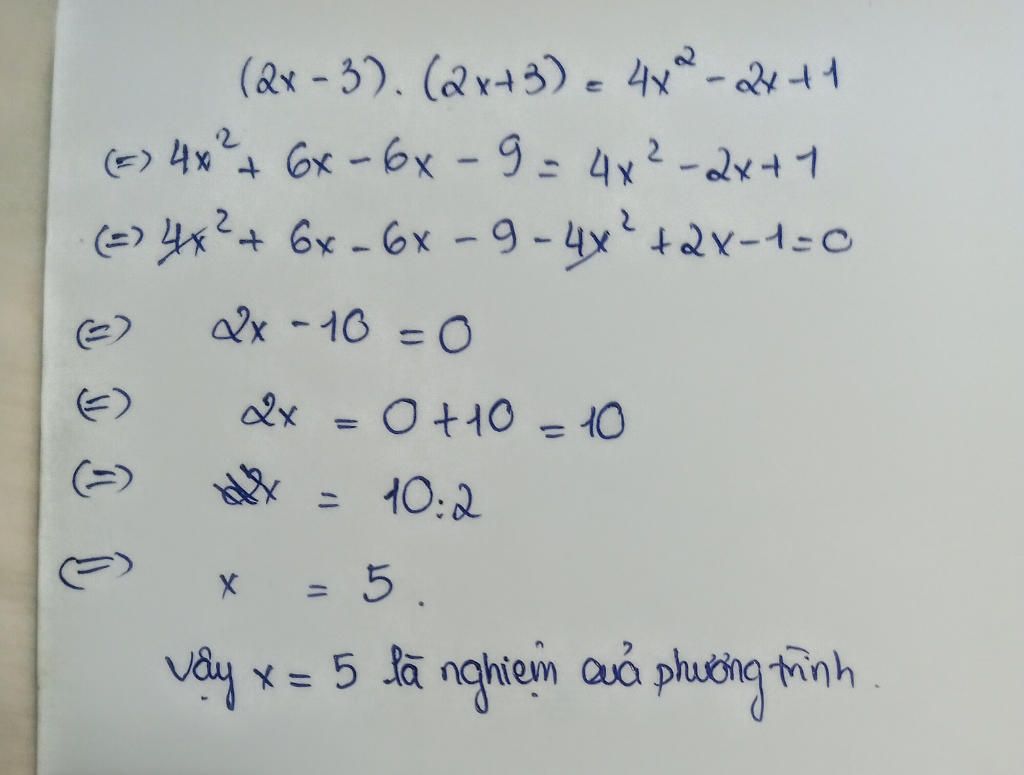 (2x - 3). (2x+3) = 4x² - 2x + 1
(=) 4x² + 6x - 6x - 9 = 4x² - 2x + 1
(=) 4x² + 6x - 6x - 9 - 4x² + 2x - 1 = 0
(=) 2x - 10 = 0
(=) 2x = 0 + 10 = 10
(=) x = 10:2
(=) x = 5.
Vậy x = 5 là nghiệm của phương trình.